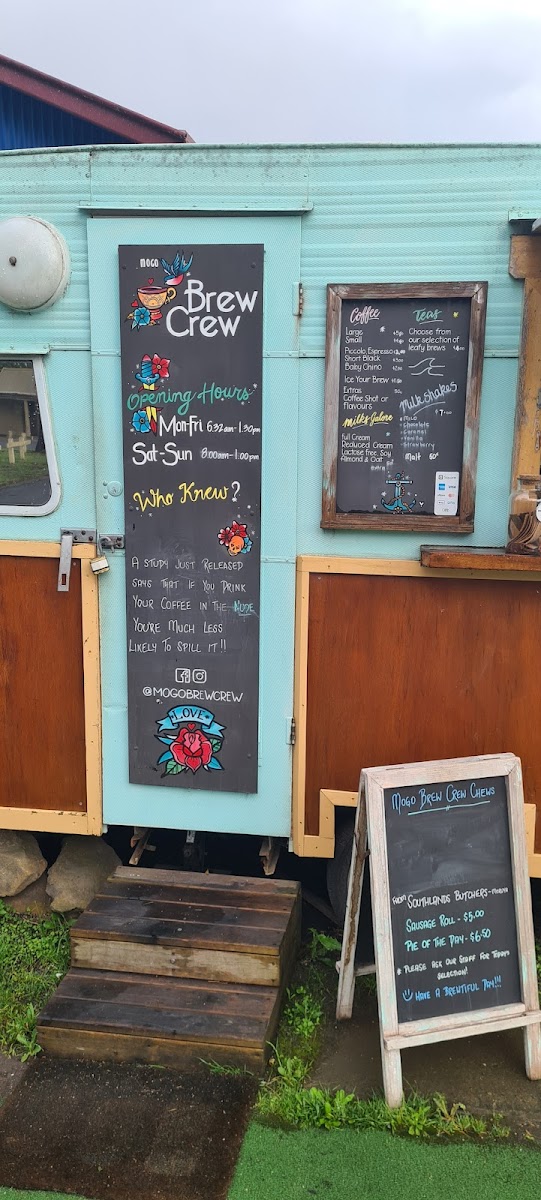 MOGO
Brew
Crew
Opening Hours
Mon-Fri 6.32am-1.30pm
Sat-Sun 8:00am-1:00pm
Who Knew?
A STUDY JUST RELEASED
SAYS THAT IF YOU DRINK
YOUR COFFEE IN THE NUDE
YOU'RE MUCH LESS
LIKELY TO SPILL IT!!
@MOGOBREWCREW
LOVE
Coffee
Large
Small
Piccolo, Espresso
Short Black
Baby Chino
Ice Your Brew
Extras
Coffee Shot or
Flavours
Milks Galore
Full Cream
Reduced Cream
Lactose free, Soy
Almond & Oat
Teas
Choose from
our selection of
leafy brews
Milkshakes
Milo
Chocolate
Caramel
Vanilla
Strawberry
Malt
MOGO BREW CREW CHEWS
FROM SOUTHLANDS BUTCHERS-
SAUSAGE ROLL - $5.00
PIE OF THE DAY - $6.50
* PLEASE ASK OUR STAFF FOR TODAYS
SELECTION!
HAVE A BREWTIFUL DAY!!!